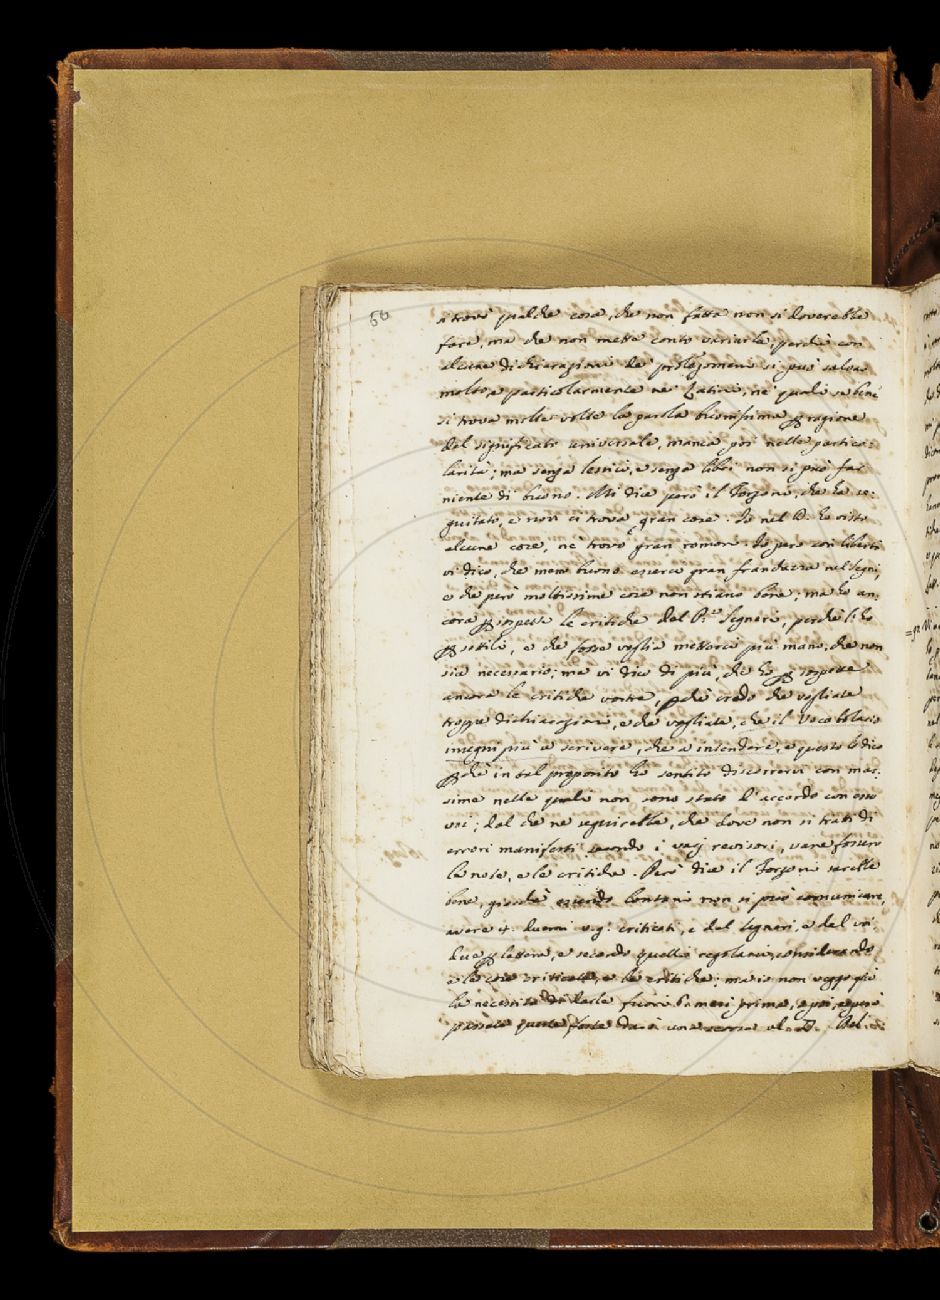 56
si trovi qualche cosa, che non fatta non si doverebbe
fare, ma che non mette conto variarla, perchè con
alcune dichiarazioni de' prolegomeni si può salvar
molto, e particolarmente ne' Latini, ne' quali se bene
si trova molte volte la parola buonissima ꝑ ragione
del significato universale, manca poi nelle partico:
larità; ma senza lessici, e senza libri non si può far
niente di buono. Mi dice però il Torzoni, che ha se:
guitato, e non ci trova gran cose. Io nel D. ho visto
alcune cose, nè trovo gran romori. Io però con libertà
vi dico, che meno buono essere gran franchezza nel Segni,
e che però moltissime cose non stiano bene; ma ho an:
cora ꝑ sospette le critiche del P.re Segneri, perchè l'ho
ꝑ sottile, e che forse voglia metterci più mano, che non
sia necessario; ma vi dico di più, che ho ꝑ sospette
ancora le critiche vostre, ꝑchè credo che vogliate
troppe dichiarazioni, e che vogliate, che il Vocabolario
insegni più a scrivere, che a intendere, e questo lo dico
ꝑchè in tal proposito ho sentito discorrervi con mas:
sime nelle quali non sono stato d'accordo con esso
voi; dal che ne seguirebbe, che dove non si tratti di
errori manifesti secondo i varj revisori, varie fossero
le note, e le critiche. Però dice il Torzoni sarebbe
bene, giacchè essendo lontani non si può comunicare,
avere 4. quaderni v.g. criticati, e dal Segneri, e dal voi
due ꝑ lettera, e secondo quelli regolarci, considerando
e le cose criticate, e le critiche; ma io non veggo già
la necessità di darle fuori 6. mesi prima, o poi, e però
passate queste feste darò una scorsa al D. Bel: